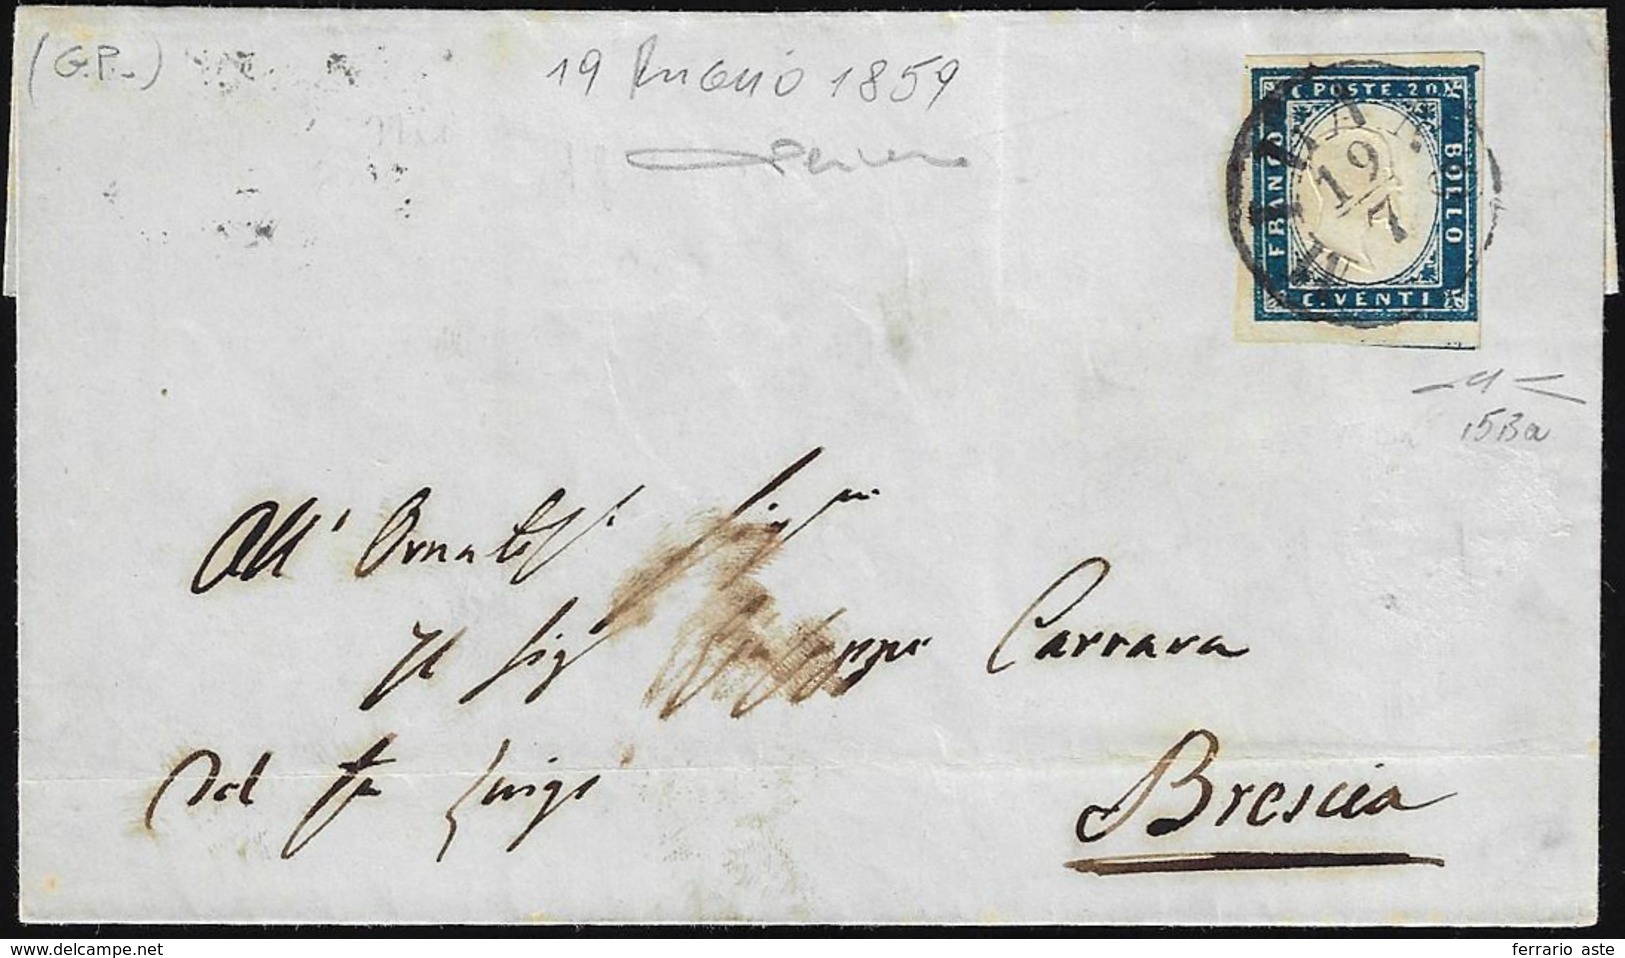 (G.P.)
19 LUGLIO 1859
C. POSTE. 20
FRANCO
BOLLO
C. VENTI
MILANO
19/7
15Ba
All' Ornatiss. Sigr
Il Sigr Giuseppe Carrara
Del fu Luigi
Brescia
delcampe.net
ferrario aste